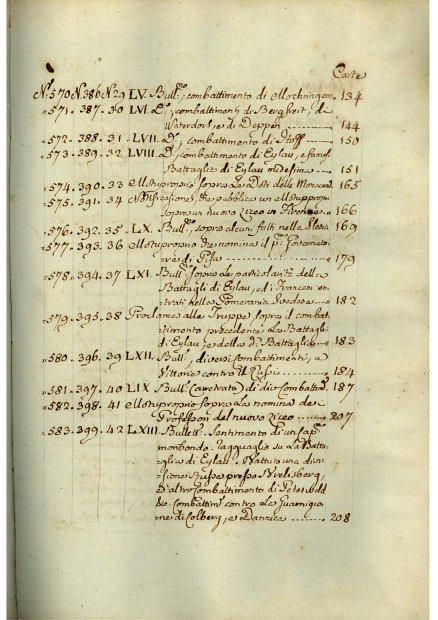 Carte
N.° 570 N. 386 N. 29 LV. Bull.°, combattimento di Mochringen " 134
" 571. 387. 30 LVI. D.°, combattimenti di Bergfreit, di
Waterdorf, e di Deppen 144
" 572. 388. 31 LVII. D.°, combattimento di Hoff 150
" 573. 389. 32 LVIII. D.°, combattimento di Eylau, e famosa
Battaglia di Eylau medesima 151
" 574. 390. 33 Motuproprio sopra Le Doti delle Monacande 165
" 575. 391. 34 Notificazione, che pubblica un Motupproprio
sopra un nuovo Liceo in Firenze 166
" 576. 392. 35 LX. Bull.°, sopra alcuni fatti nella Slesia 169
" 577. 393. 36 Motuproprio che nomina il p.° Governato-
re di Pisa 179
" 578. 394. 37 LXI. Bull.°, sopra Le particolarità della
Battaglia di Eylau, ed i Francesi en-
trati nella Pomerania Svedese 182
" 579. 395. 38 Proclama alle Truppe sopra il combat-
timento precedente La Battaglia
di Eylau e della d.ª Battaglia 183
" 580. 396. 39 LXII. Bull.°, diversi combattimenti, e
Vittorie contro i Russi 184
" 581. 397. 40 LIX. Bull.° (arretrato) di div. Combattim.ti 187
" 582. 398. 41 Motuproprio sopra La nomina dei
Professori del nuovo Liceo 207
" 583. 399. 42 LXIII. Bullett.° Sentimento di un Cap.°
moribondo. Ragguaglio su La Batta-
glia di Eylau. Battuta una divi-
sione Russa presso
ed altro Combattimento di
Combattim.ti contro La Guarnigio-
ne di Colberg, e Danzica 208